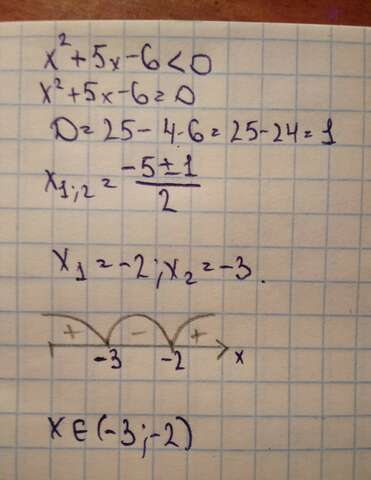 x²+5x-6<0
x²+5x-6=0
D=25-4·6=25-24=1
x₁;₂=(-5±1)/2
x₁=-2; x₂=-3.
+ - +
-3 -2 x
x∈(-3;-2)